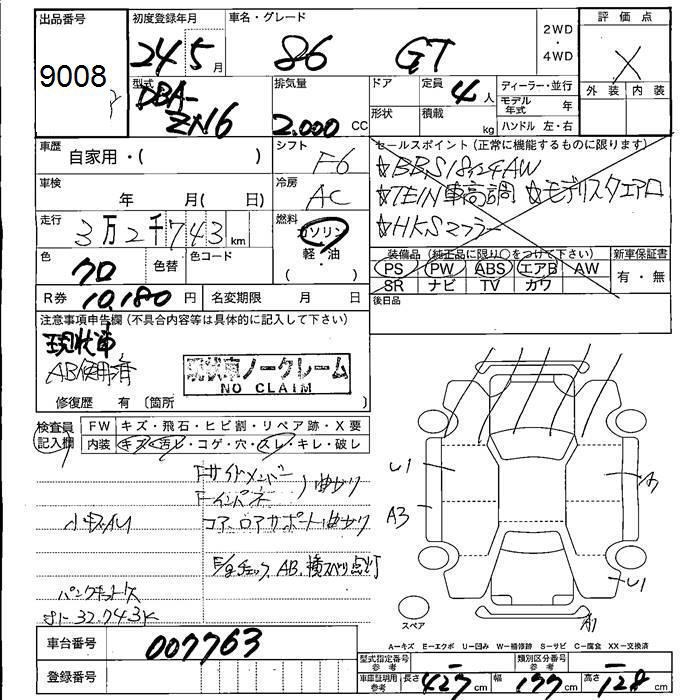 出品番号
9008
初度登録年月
24 5 月
車名・グレード
86 GT
2WD
・
4WD
評価点
X
外装 内装
型式
DBA-
ZN6
排気量
2.000 CC
ドア
形状
定員
4 人
積載
kg
ディーラー・並行
モデル年式 年
ハンドル 左・右
車歴
自家用・( )
シフト
F6
車検
年 月( 日)
冷房
AC
セールスポイント(正常に機能するものに限ります)
☆BBS18インチAW
☆TEIN車高調 ☆モデリスタエアロ
☆HKSマフラー
走行
3万2千743 km
燃料
ガソリン
軽・油
( )
色
クロ
色替
色コード
装備品(純正品に限り○をつけて下さい)
PS PW ABS エアB AW
SR ナビ TV カワ
新車保証書
有・無
R券 10,180 円
名変期限 月 日
後日品
注意事項申告欄(不具合内容等は具体的に記入して下さい)
現状車
AB使用済
現状車ノークレーム
NO CLAIM
修復歴 有〔箇所 〕
検査員
記入欄
FW キズ・飛石・ヒビ割・リペア跡・X要
内装 キズ・汚レ・コゲ・穴・スレ・キレ・破レ
Fサイドメンバー
Fインパネ
曲がり
小キズAU
コア、ロアサポート曲がり
E/gチェック、AB、横スベリ点灯
パンクキット欠
32.743K
U1
A3
A
U1
A1
スペア
A-キズ E-エクボ U-凹み W-補修跡 S-サビ C-腐食 XX-交換済
車台番号
007763
登録番号
型式指定番号
参考
類別区分番号
参考
車庫証明用
参考
長さ 427 cm
幅 177 cm
高さ 128 cm